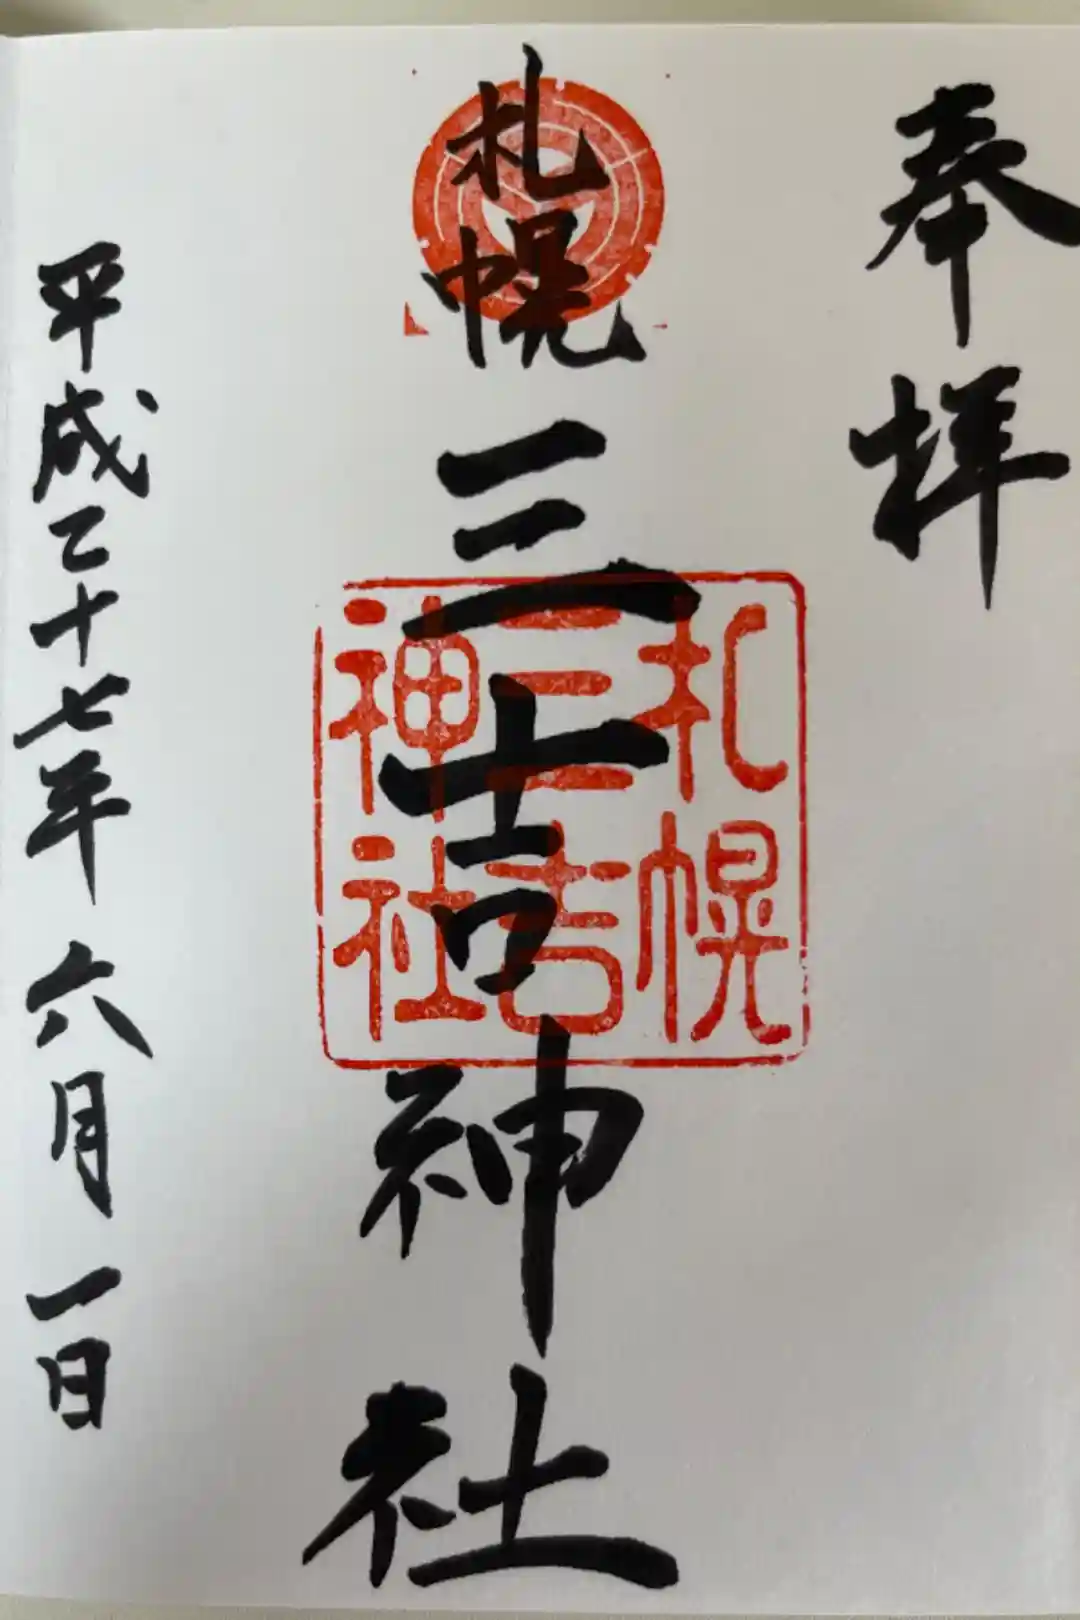 奉拝
札幌三吉神社
札幌
三吉
神社
平成二十七年 六月 一日